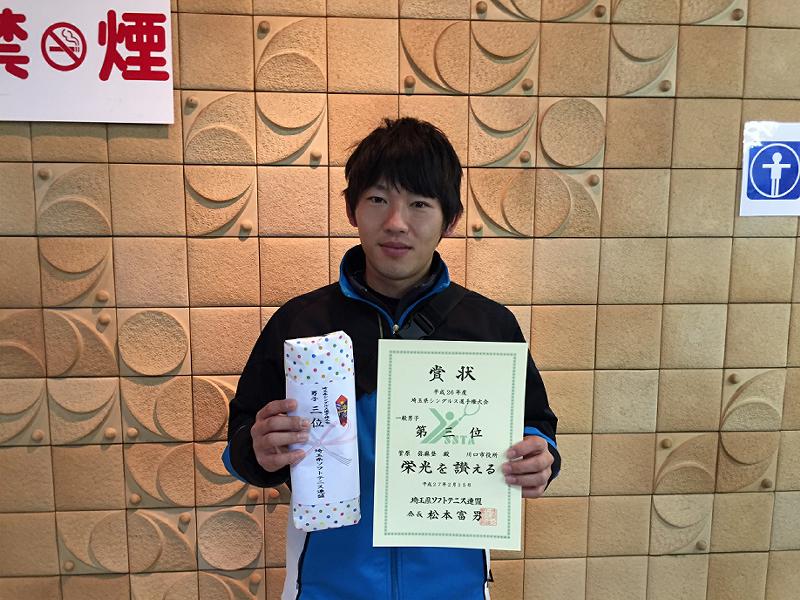 禁煙
賞状
平成26年度
埼玉県シングルス選手権大会
一般男子
第三位
SSTA
菅原 殿 川口市役所
栄光を讃える
平成27年2月15日
埼玉県ソフトテニス連盟
会長 松本富男
男子 三位
埼玉県ソフトテニス連盟